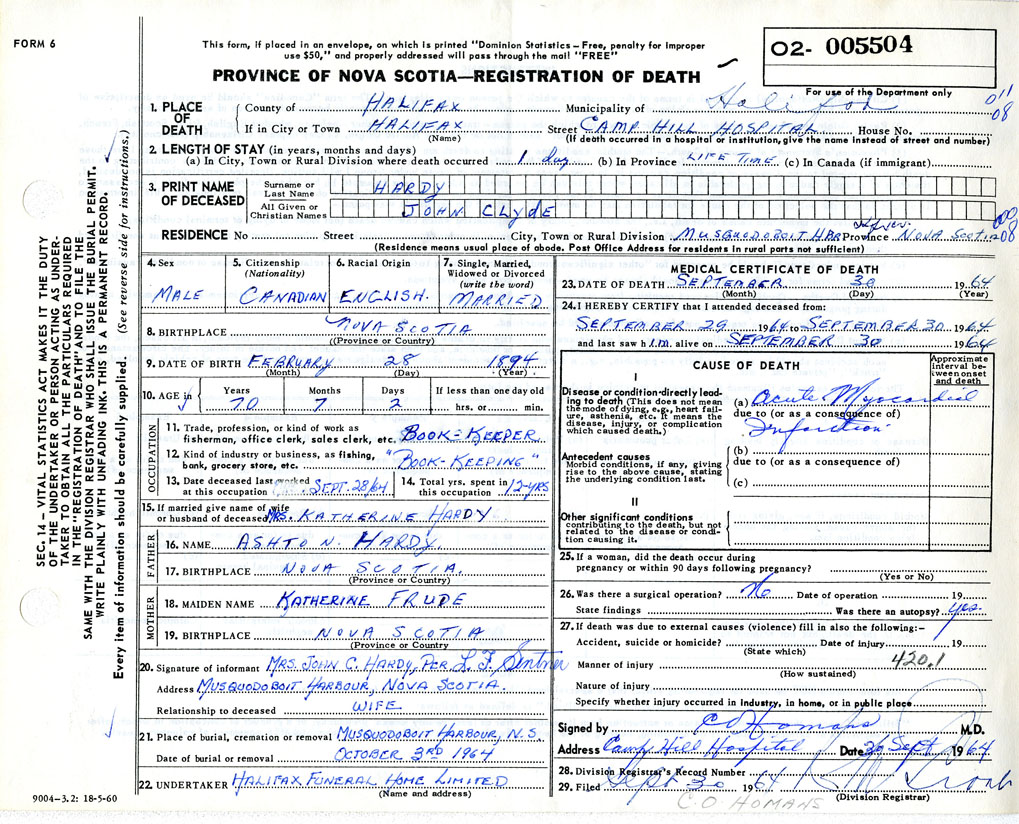 FORM 6
This form, if placed in an envelope, on which is printed "Dominion Statistics – Free, penalty for improper
use $50," and properly addressed will pass through the mail "FREE"
PROVINCE OF NOVA SCOTIA—REGISTRATION OF DEATH
02- 005504
For use of the Department only
011
08
1. PLACE OF DEATH
County of HALIFAX Municipality of Halifax
If in City or Town HALIFAX Street CAMP HILL HOSPITAL House No.
(Name) (If death occurred in a hospital or institution, give the name instead of street and number)
2. LENGTH OF STAY (in years, months and days)
(a) In City, Town or Rural Division where death occurred 1 day (b) In Province LIFE TIME (c) In Canada (if immigrant)
3. PRINT NAME OF DECEASED
Surname or Last Name HARDY
All Given or Christian Names JOHN CLYDE
RESIDENCE No Street City, Town or Rural Division MUSQUODOBOIT HAR Province NOVA SCOTIA
08
(Residence means usual place of abode. Post Office Address for residents in rural parts not sufficient)
4. Sex
MALE
5. Citizenship
(Nationality)
CANADIAN
6. Racial Origin
ENGLISH.
7. Single, Married,
Widowed or Divorced
(write the word)
MARRIED
8. BIRTHPLACE NOVA SCOTIA
(Province or Country)
9. DATE OF BIRTH FEBRUARY 28 1894
(Month) (Day) (Year)
10. AGE in
Years Months Days If less than one day old
70 7 2 hrs. or min.
OCCUPATION
11. Trade, profession, or kind of work as
fisherman, office clerk, sales clerk, etc. BOOK-KEEPER
12. Kind of industry or business, as fishing,
bank, grocery store, etc. "BOOK-KEEPING"
13. Date deceased last worked
at this occupation SEPT. 28/64
14. Total yrs. spent in
this occupation 12-YRS
15. If married give name of wife
or husband of deceased MRS. KATHERINE HARDY
FATHER
16. NAME ASHTON N. HARDY.
17. BIRTHPLACE NOVA SCOTIA.
(Province or Country)
MOTHER
18. MAIDEN NAME KATHERINE FRUDE
19. BIRTHPLACE NOVA SCOTIA
(Province or Country)
20. Signature of informant MRS. JOHN C. HARDY, PER L. F. Sentner
Address MUSQUODOBOIT HARBOUR, NOVA SCOTIA.
Relationship to deceased WIFE
21. Place of burial, cremation or removal MUSQUODOBOIT HARBOUR, N.S.
Date of burial or removal OCTOBER 3RD 1964
22. UNDERTAKER HALIFAX FUNERAL HOME LIMITED
(Name and address)
MEDICAL CERTIFICATE OF DEATH
23. DATE OF DEATH SEPTEMBER 30 1964
(Month) (Day) (Year)
24. I HEREBY CERTIFY that I attended deceased from:
SEPTEMBER 29 1964 to SEPTEMBER 30 1964
and last saw him alive on SEPTEMBER 30 1964
CAUSE OF DEATH
Approximate
interval be-
tween onset
and death
I
Disease or condition directly lead-
ing to death (This does not mean
the mode of dying, e.g., heart fail-
ure, asthenia, etc. It means the
disease, injury, or complication
which caused death.)
(a) Acute Myocardial
due to (or as a consequence of)
Infarction
Antecedent causes
Morbid conditions, if any, giving
rise to the above cause, stating
the underlying condition last.
(b)
due to (or as a consequence of)
(c)
II
Other significant conditions
contributing to the death, but not
related to the disease or condi-
tion causing it.
25. If a woman, did the death occur during
pregnancy or within 90 days following pregnancy?
(Yes or No)
26. Was there a surgical operation? No Date of operation 19
State findings Was there an autopsy? yes.
27. If death was due to external causes (violence) fill in also the following:-
Accident, suicide or homicide? Date of injury 19
(State which)
Manner of injury 420.1
(How sustained)
Nature of injury
Specify whether injury occurred in industry, in home, or in public place
Signed by C O Homans M.D.
Address Camp Hill Hospital Date 30 Sept 1964
28. Division Registrar's Record Number
29. Filed Sept 30 1964
(Division Registrar)
C.O. HOMANS
SEC. 14 – VITAL STATISTICS ACT MAKES IT THE DUTY
OF THE UNDERTAKER OR PERSON ACTING AS UNDER-
TAKER TO OBTAIN ALL THE PARTICULARS REQUIRED
IN THE "REGISTRATION OF DEATH" AND TO FILE THE
SAME WITH THE DIVISION REGISTRAR WHO SHALL ISSUE THE BURIAL PERMIT.
WRITE PLAINLY WITH UNFADING INK. THIS IS A PERMANENT RECORD.
Every item of information should be carefully supplied. (See reverse side for instructions.)
9004-3.2: 18-5-60